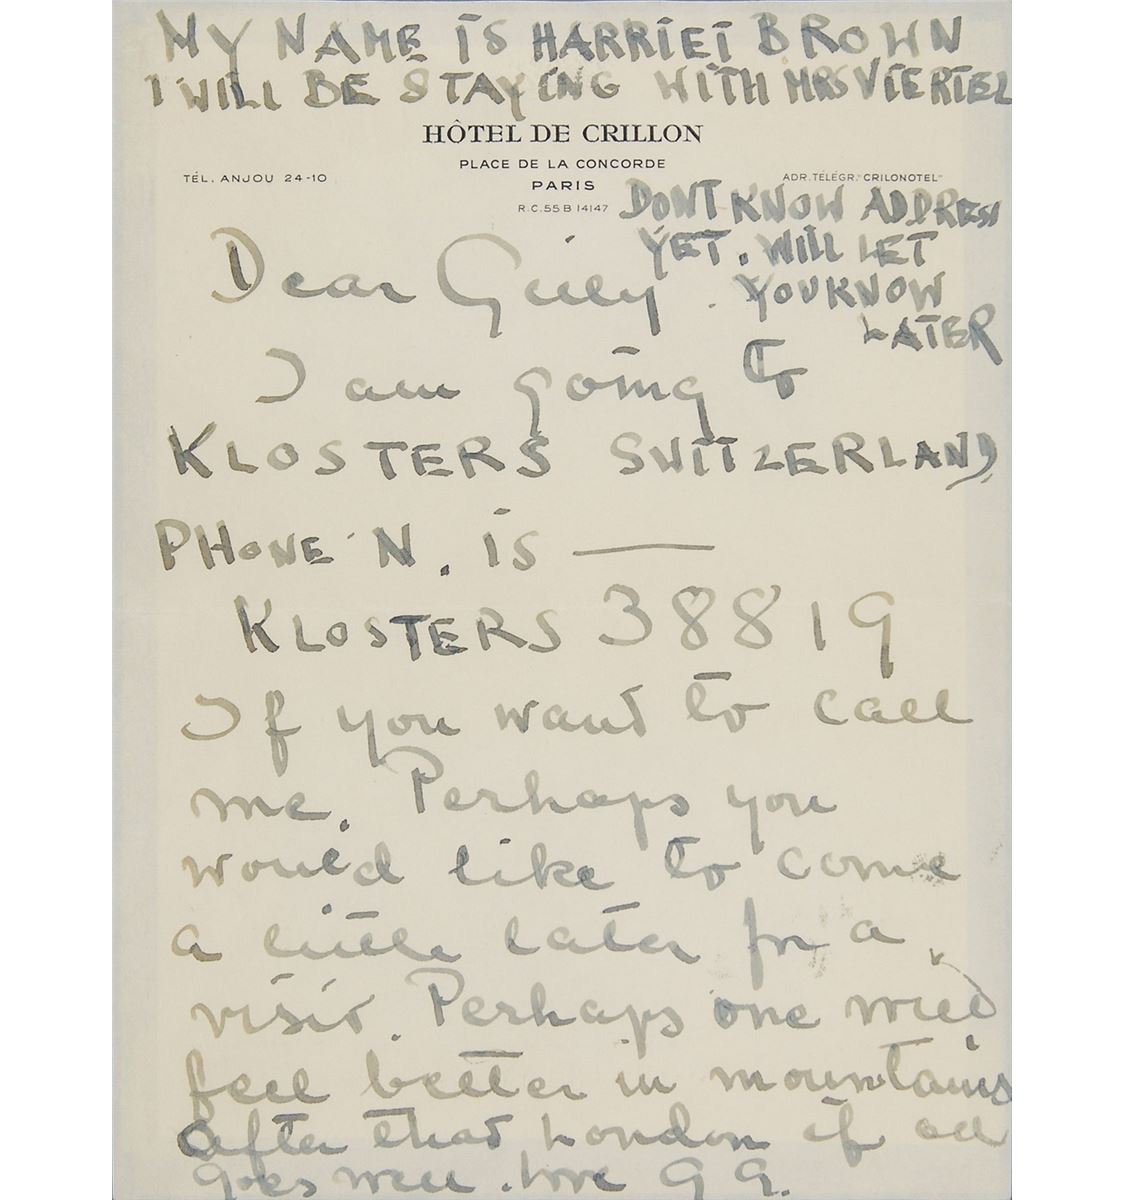 MY NAME IS HARRIET BROWN
I WILL BE STAYING WITH MRS VIERTEL
HÔTEL DE CRILLON
PLACE DE LA CONCORDE
TÉL. ANJOU 24-10
PARIS
ADR. TÉLÉGR. "CRILONOTEL"
R.C. 55 B 14147
DONT KNOW ADDRESS
YET. WILL LET
YOU KNOW
LATER
Dear
I am going to
KLOSTERS SWITZERLAND
PHONE N. IS —
KLOSTERS 38819
If you want to call
me. Perhaps you
would like to come
a little later for a
visit. Perhaps one will
feel better in mountains
after that London if all
goes well. love G G.